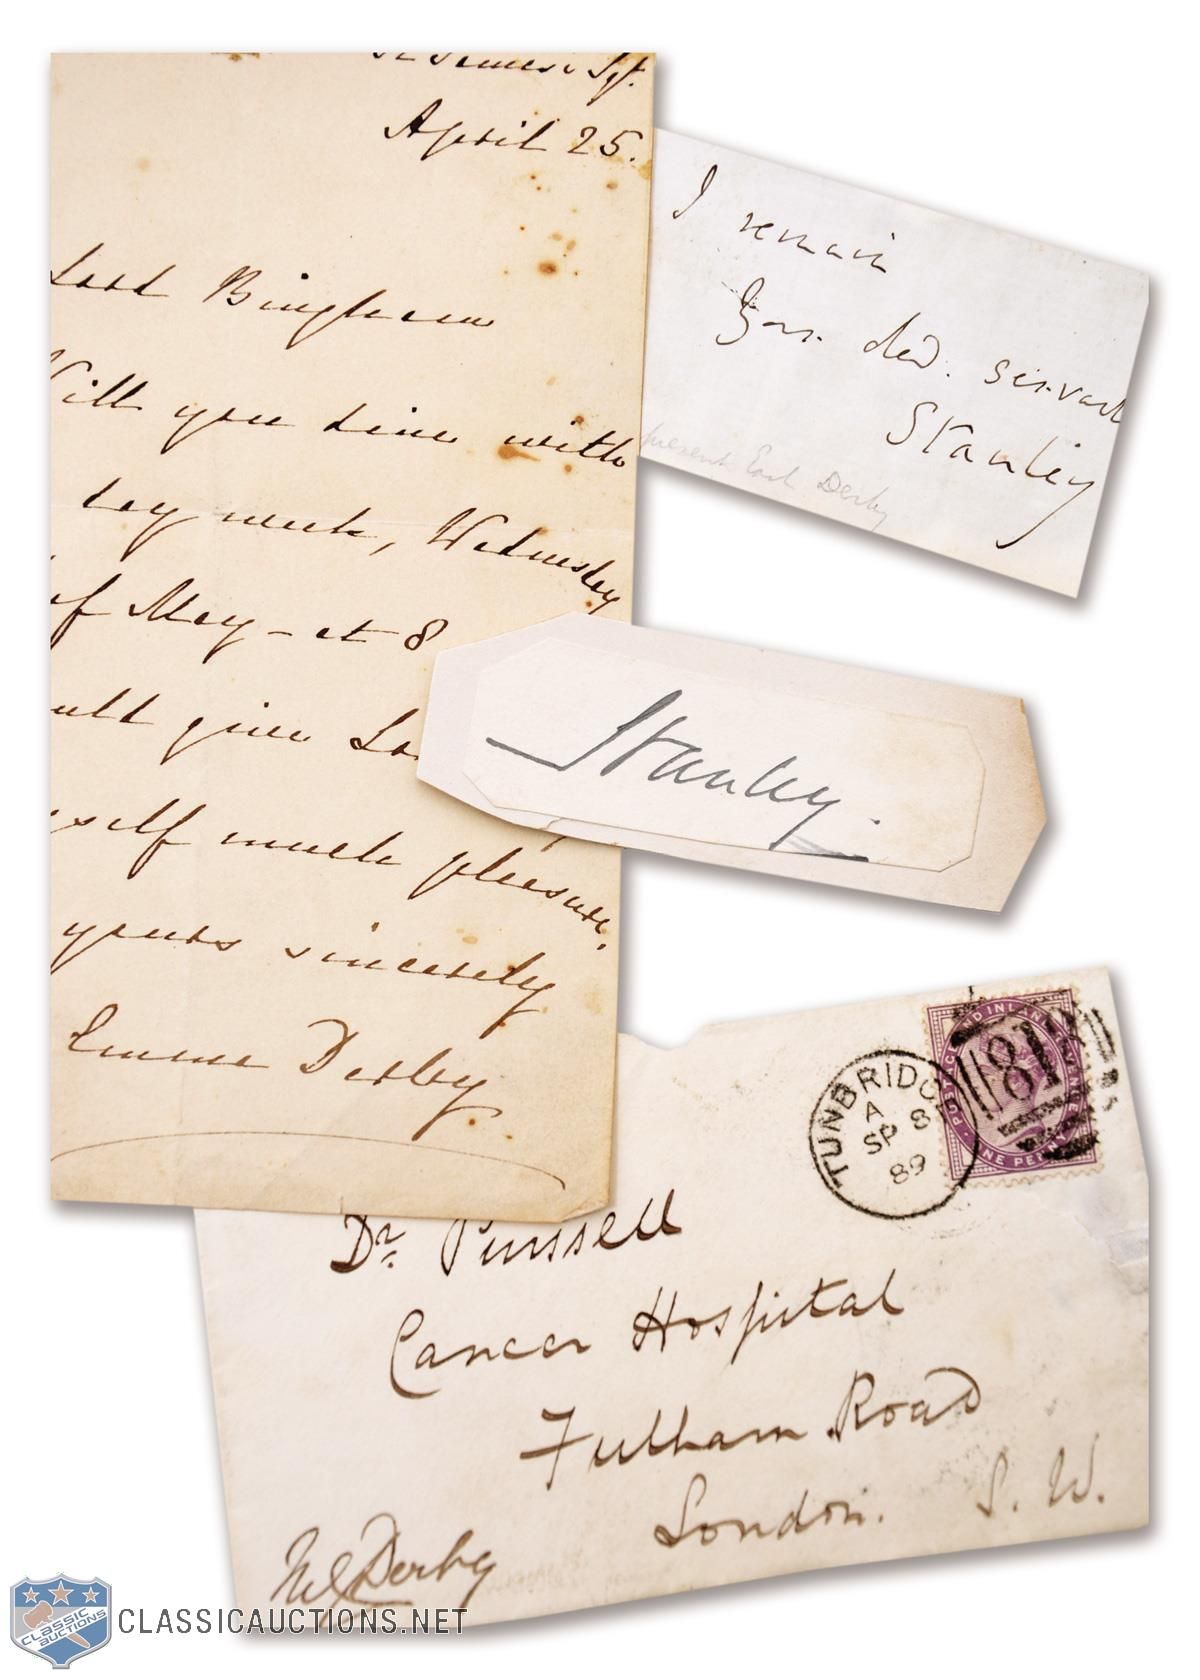 St James's Sq.
April 25.
Lord Bingham
Will you dine with
day week, Wednesday
of May - at 8
uld give
yself much pleasure.
yours sincerely
Emma Derby
I remain
Your obed. servant
Stanley
present Earl Derby
Stanley.
TUNBRIDG
A 8
SP
89
POSTAGE AND INLAND REVENUE
ONE PENNY
81
Dr. Purssell
Cancer Hospital
Fulham Road
London. S. W.
Derby
CLASSIC AUCTIONS
CLASSICAUCTIONS.NET